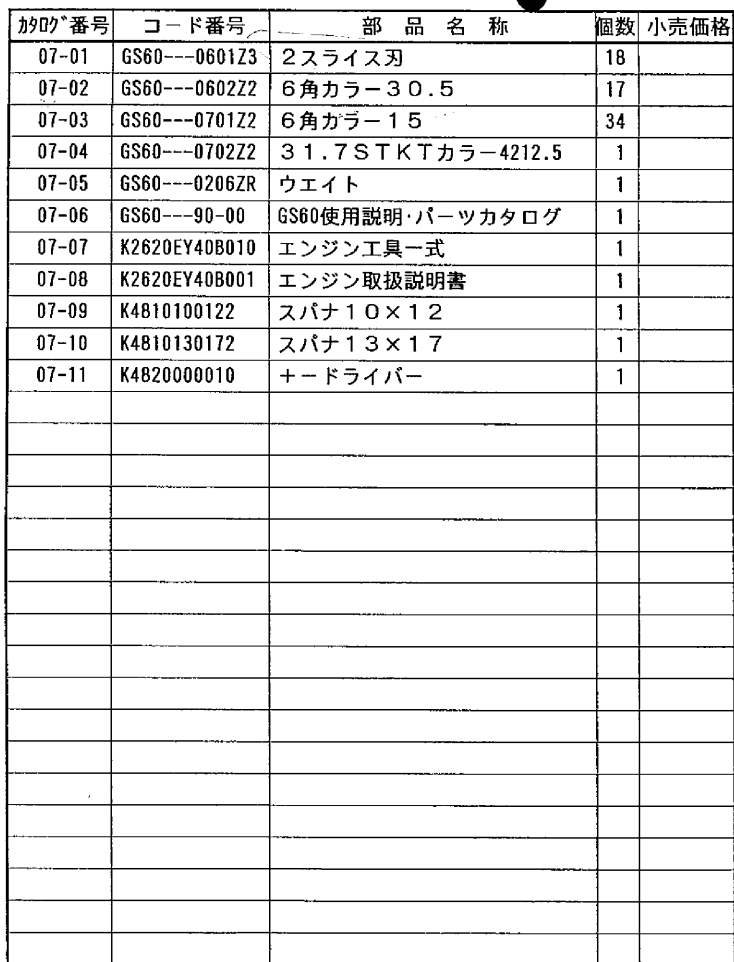 ｶﾀﾛｸﾞ番号 コード番号 部品名称 個数 小売価格
07-01 GS60---0601Z3 2スライス刃 18
07-02 GS60---0602Z2 6角カラー30.5 17
07-03 GS60---0701Z2 6角カラー15 34
07-04 GS60---0702Z2 31.7STKTカラー4212.5 1
07-05 GS60---0206ZR ウエイト 1
07-06 GS60---90-00 GS60使用説明･パーツカタログ 1
07-07 K2620EY40B010 エンジン工具一式 1
07-08 K2620EY40B001 エンジン取扱説明書 1
07-09 K4810100122 スパナ10×12 1
07-10 K4810130172 スパナ13×17 1
07-11 K4820000010 +-ドライバー 1